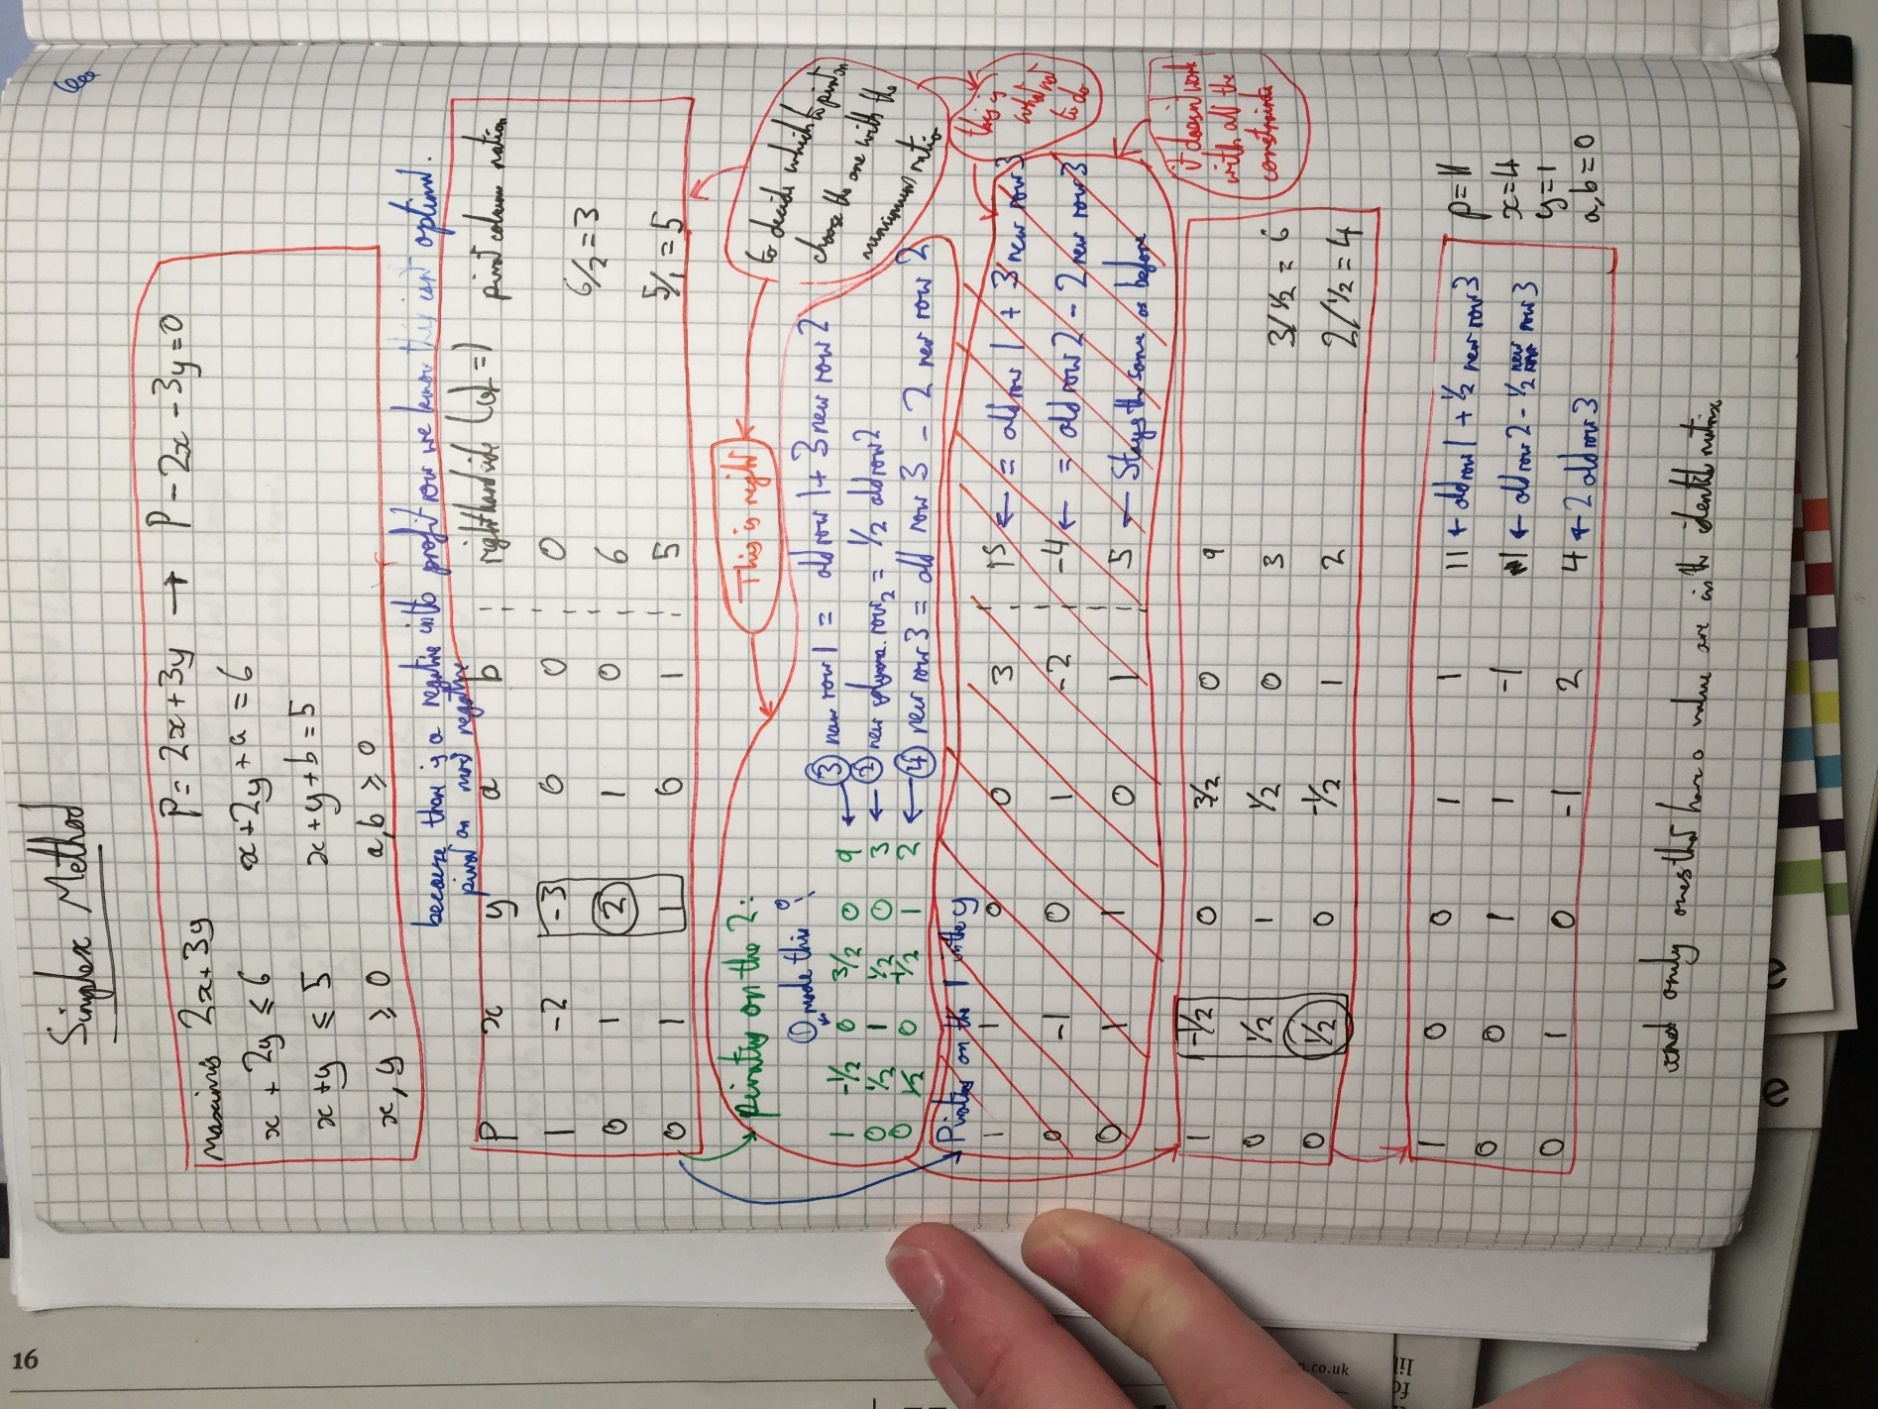 Simplex Method
maximis 2x+3y P = 2x + 3y → P - 2x - 3y = 0
x + 2y ≤ 6 x+2y+a = 6
x+y ≤ 5 x+y+b = 5
x, y ≥ 0 a,b ≥ 0
because there is a negative in the profit row we know this isn't optimal.
pivot on most negative
P x y a b right hand side pivot column ratios
1 -2 -3 0 0 0
0 1 2 1 0 6 6/2 = 3
0 1 1 0 1 5 5/1 = 5
to decide which to pivot on
choose the one with the
minimum ratio
This is right
this is
what not
to do
Pivoting on the 2:
① made this 0
1 -1/2 0 3/2 0 9 ← ③ new row 1 = old row 1 + 3 new row 2
0 1/2 1 1/2 0 3 ← ② new row 2 = 1/2 old row 2
0 1/2 0 -1/2 1 2 ← ④ new row 3 = old row 3 - 2 new row 2
Pivoting on the 1 in the y
1 1 0 0 3 15 ← = old row 1 + 3 new row 3
0 -1 0 1 -2 -4 ← = old row 2 - 2 new row 3
0 1 1 0 1 5 ← Stays the same as before
it doesn't work
with all the
constraints
1 -1/2 0 3/2 0 9
0 1/2 1 1/2 0 3 3/1/2 = 6
0 1/2 0 -1/2 1 2 2/1/2 = 4
1 0 0 1 1 11 ← old row 1 + 1/2 new row 3
0 0 1 1 -1 1 ← old row 2 - 1/2 new row 3
0 1 0 -1 2 4 ← 2 old row 3
P = 11
x = 4
y = 1
a, b = 0
only ones that have a value are in the identity matrix
16
.co.uk
e
e